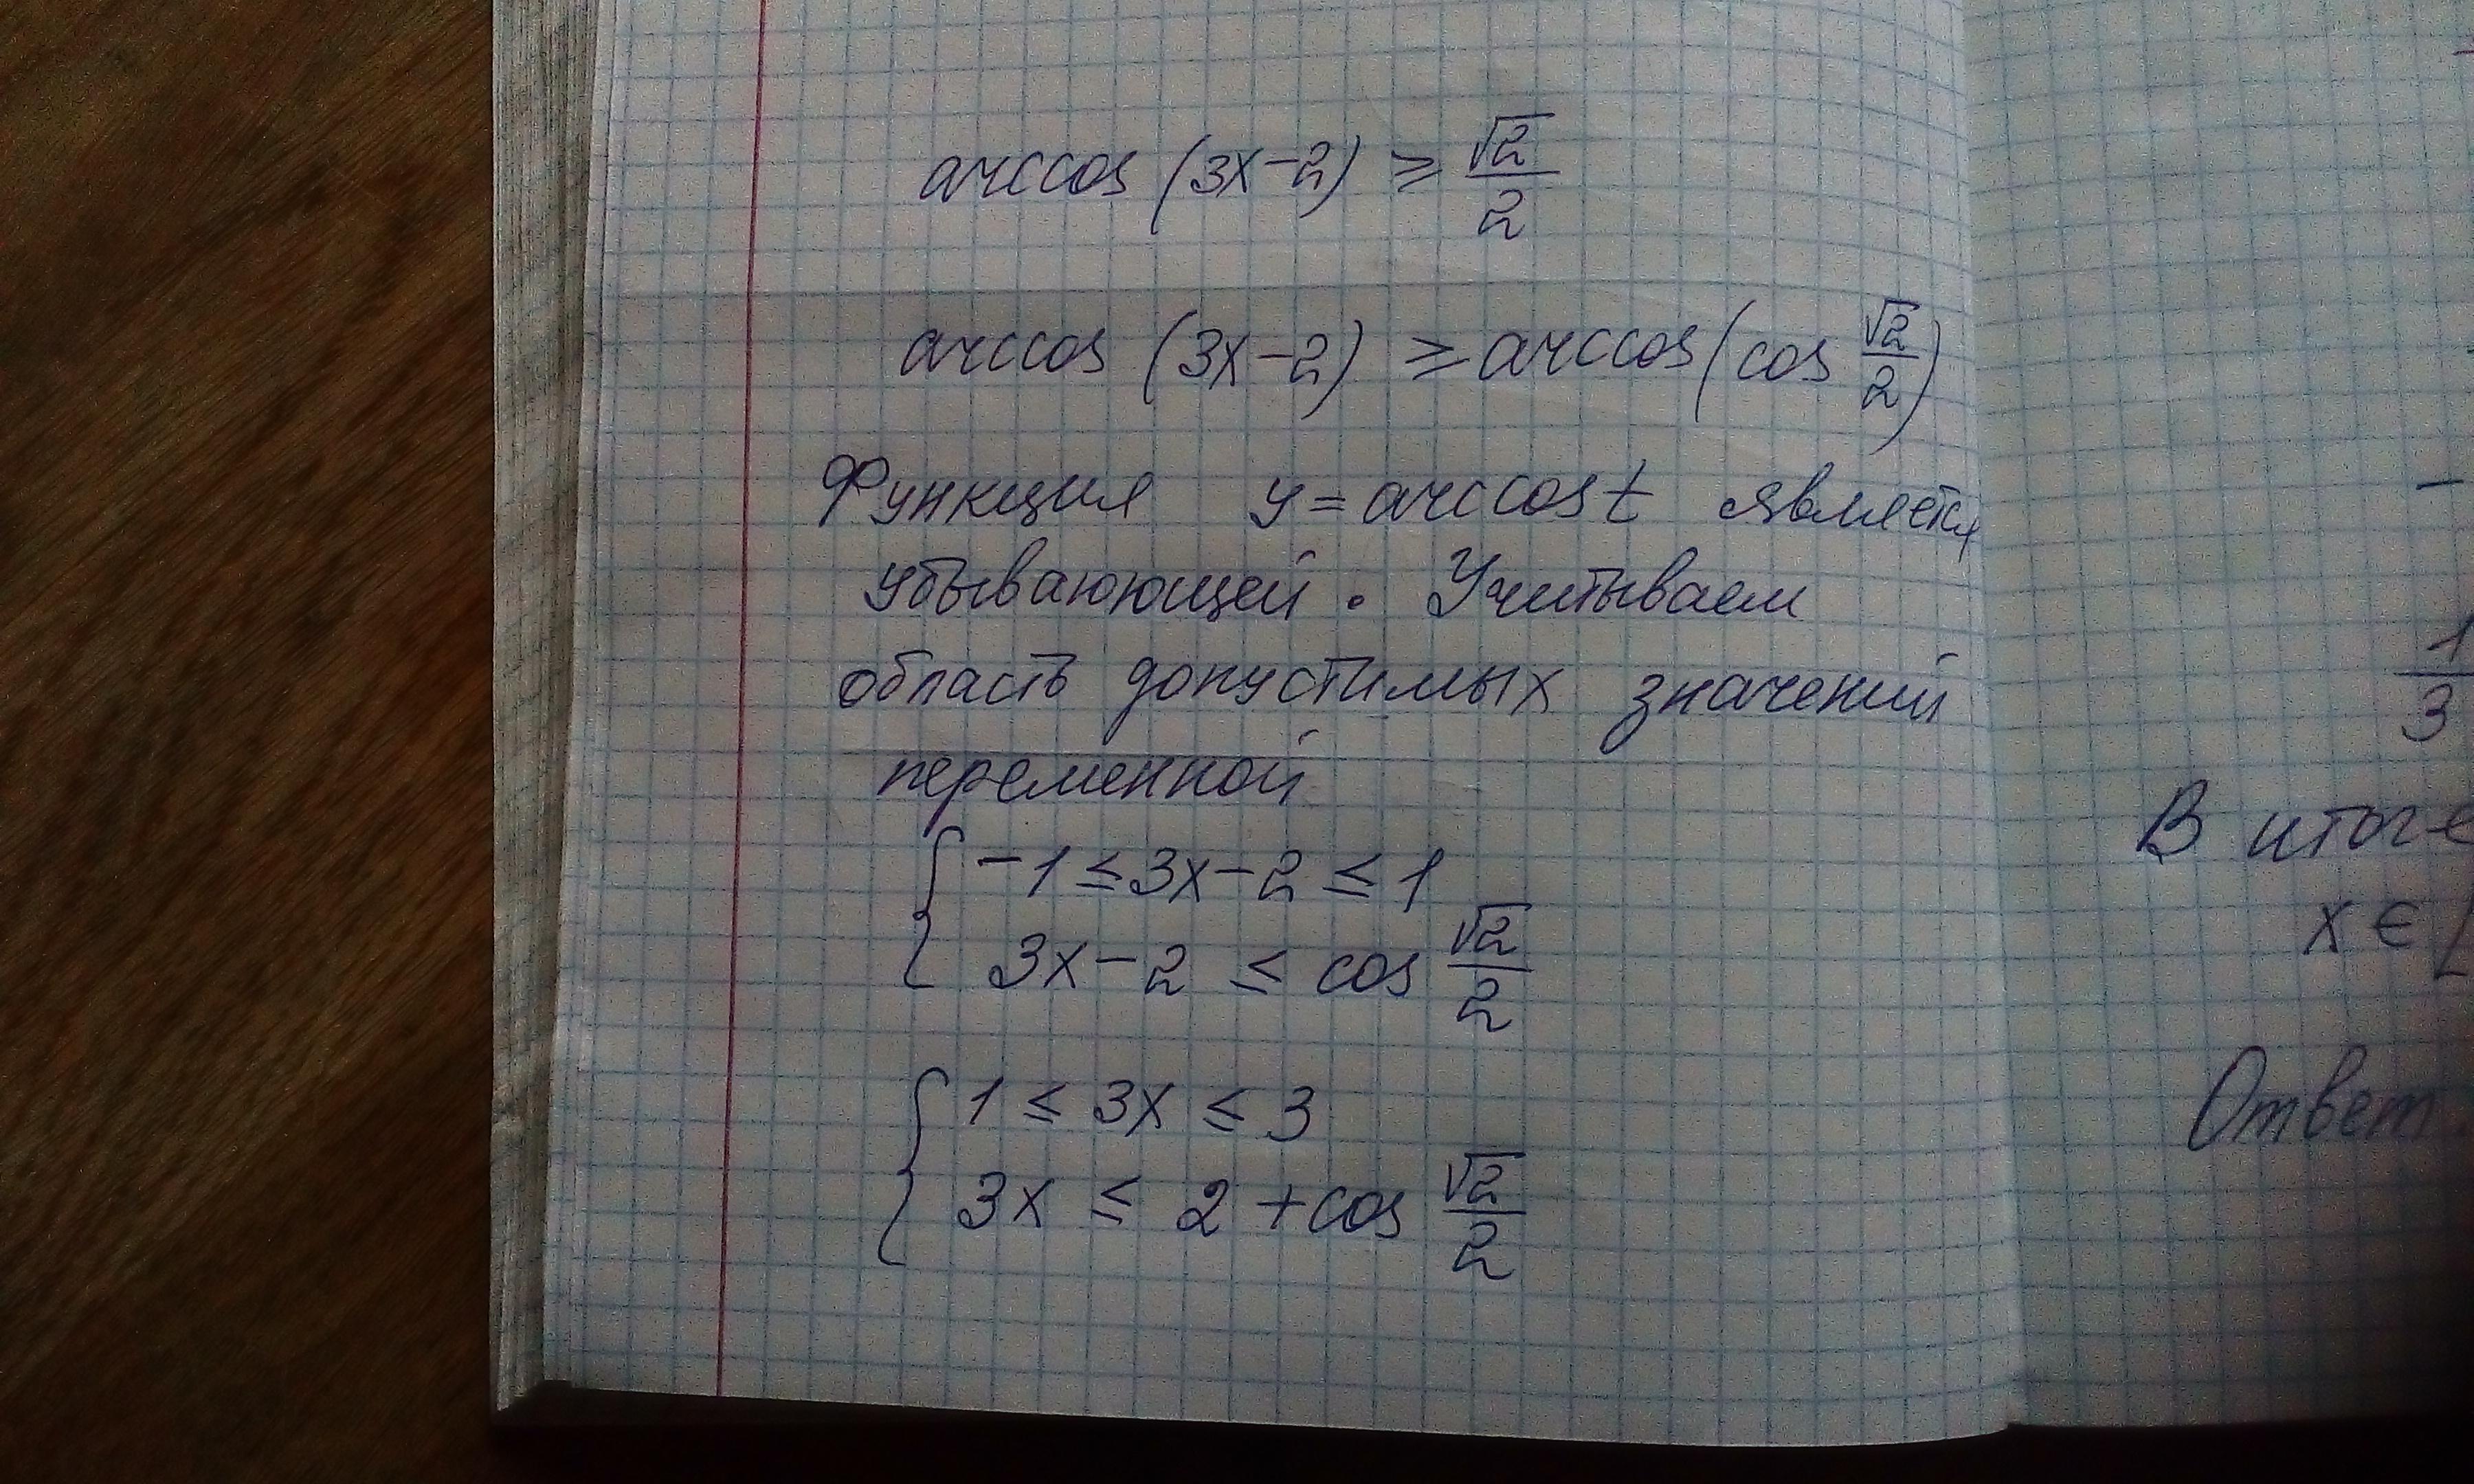 arccos (3x-2) ≥ √2/2
arccos (3x-2) ≥ arccos(cos √2/2)
Функция y = arccos t является
убывающей. Учитываем
область допустимых значений
переменной
{ -1 ≤ 3x-2 ≤ 1
3x-2 ≤ cos √2/2
{ 1 ≤ 3x ≤ 3
3x ≤ 2 + cos √2/2
-
1/3
В итоге
x ∈ [
Ответ